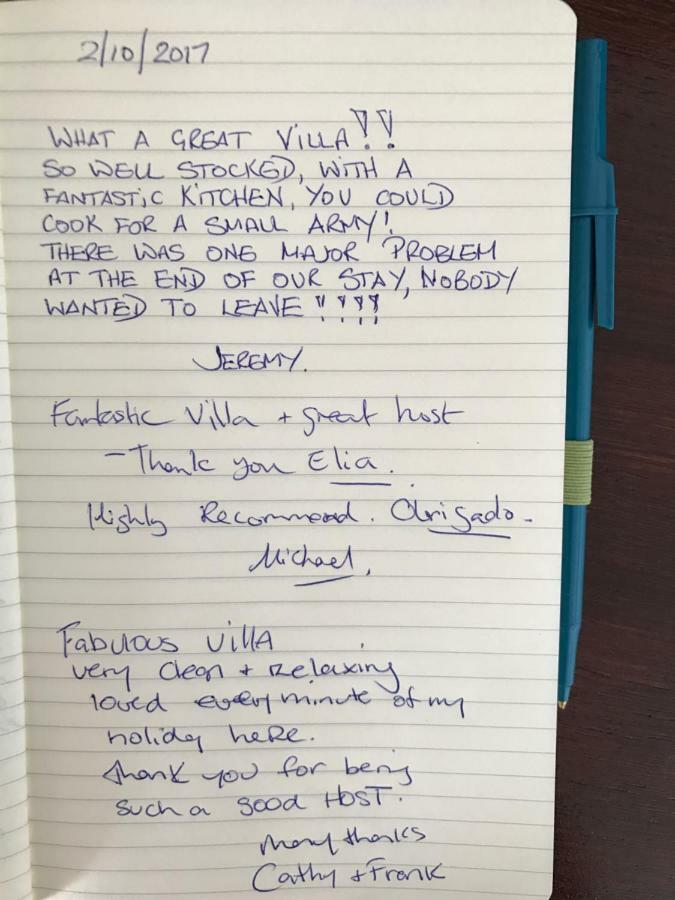 2/10/2017
WHAT A GREAT VILLA!!
SO WELL STOCKED, WITH A
FANTASTIC KITCHEN, YOU COULD
COOK FOR A SMALL ARMY!
THERE WAS ONE MAJOR PROBLEM
AT THE END OF OUR STAY, NOBODY
WANTED TO LEAVE !!!!!
JEREMY.
Fantastic Villa + great host
- Thank you Elia.
Highly Recommend. Obrigado.
Michael,
Fabulous VillA
very clean + Relaxing
loved every minute of my
holiday here.
thank you for being
such a good HOST.
many thanks
Cathy + Frank